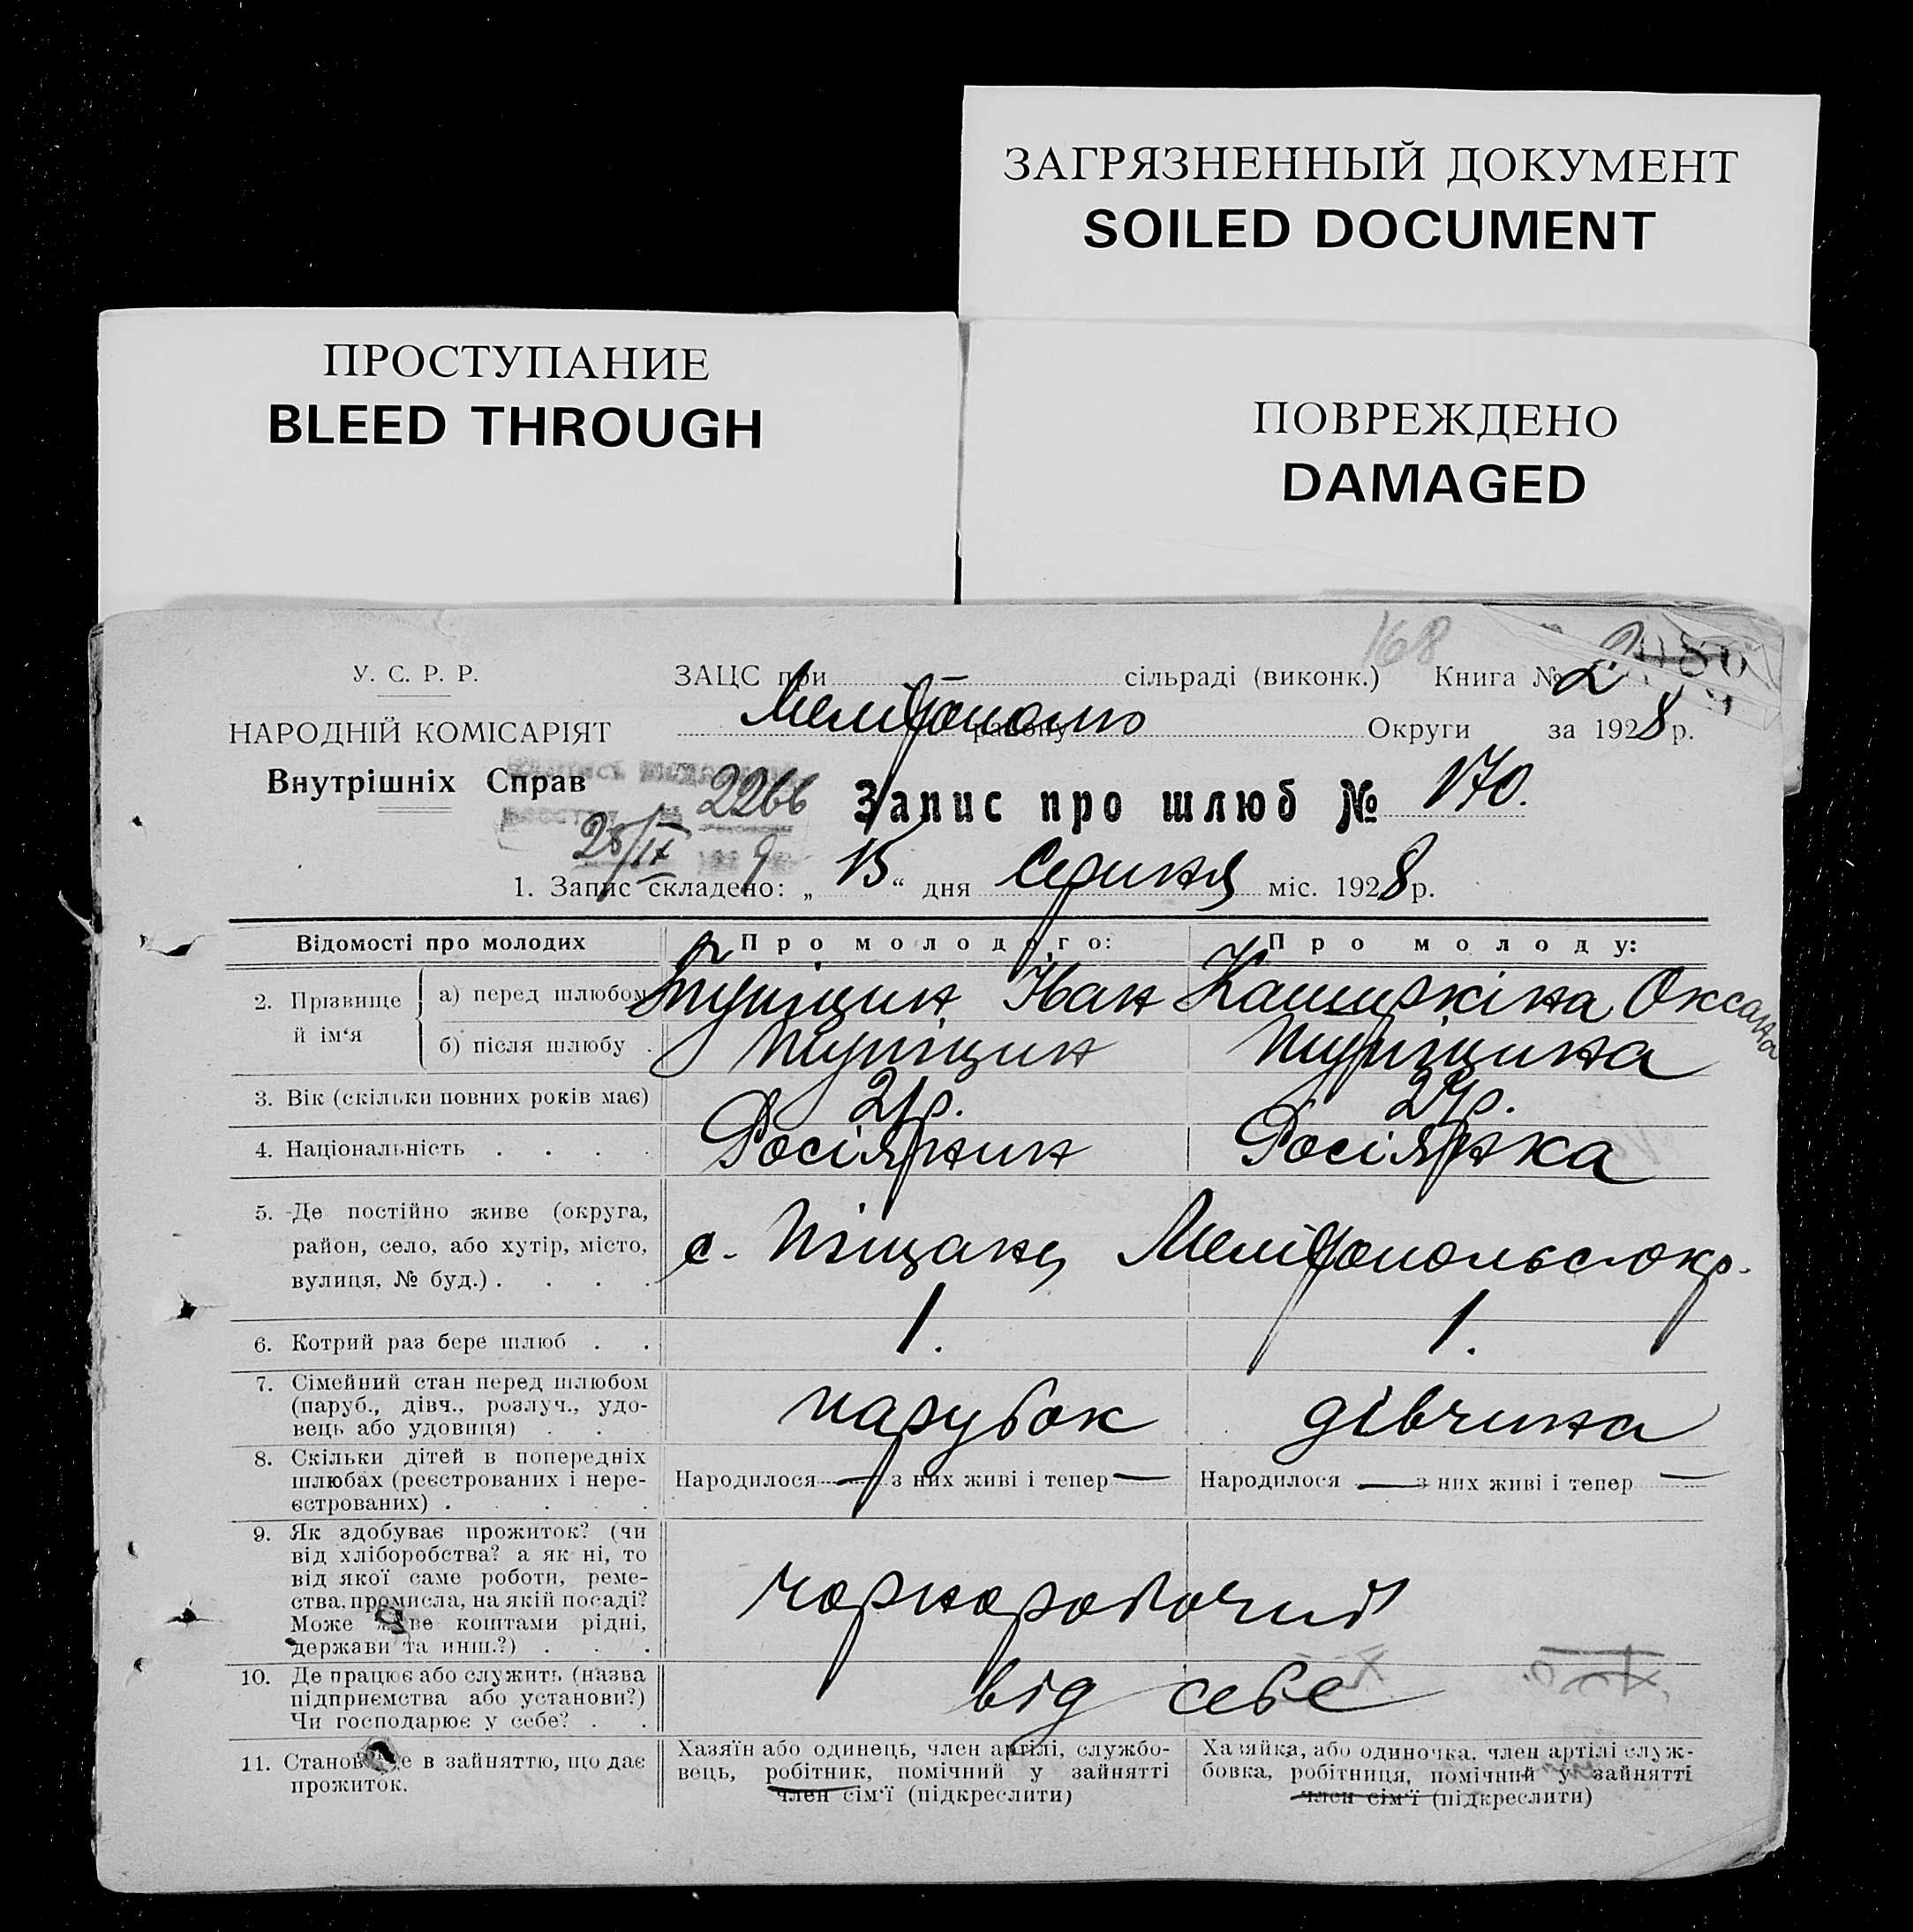 ЗАГРЯЗНЕННЫЙ ДОКУМЕНТ
SOILED DOCUMENT
ПРОСТУПАНИЕ
BLEED THROUGH
ПОВРЕЖДЕНО
DAMAGED
168
У. С. Р. Р.
НАРОДНІЙ КОМІСАРІЯТ
Внутрішніх Справ
ЗАЦС при сільраді (виконк.) Книга № 2
району Округи за 1928 р.
2266
28/IX
Запис про шлюб № 170.
1. Запис складено: „15“ дня Серпня міс. 1928 р.
Відомості про молодих Про молодого: Про молоду:
2. Прізвище й ім‘я
а) перед шлюбом Іван Оксана
б) після шлюбу
3. Вік (скільки повних років має) 21р. 24р.
4. Національність Росіянин Росіянка
5. Де постійно живе (округа,
район, село, або хутір, місто,
вулиця, № буд.) с. Піщане,
6. Котрий раз бере шлюб 1. 1.
7. Сімейний стан перед шлюбом
(паруб., дівч., розлуч., удо-
вець або удовиця) парубок дівчина
8. Скільки дітей в попередніх
шлюбах (реєстрованих і нере-
єстрованих)
Народилося — з них живі і тепер — Народилося — з них живі і тепер —
9. Як здобуває прожиток? (чи
від хліборобства? а як ні, то
від якої саме роботи, реме-
ства, промисла, на якій посаді?
Може коштами рідні,
держави та инш.?)
чорноробочий
10. Де працює або служить (назва
підприємства або установи?)
Чи господарює у себе?
від себе
11. в зайняттю, що дає
прожиток.
Хазяїн або одинець, член артілі, службо-
вець, робітник, помічний у зайнятті
член сім‘ї (підкреслити)
Хазяйка, або одиночка, член артілі служ-
бовка, робітниця, помічний у зайнятті
член сім‘ї (підкреслити)